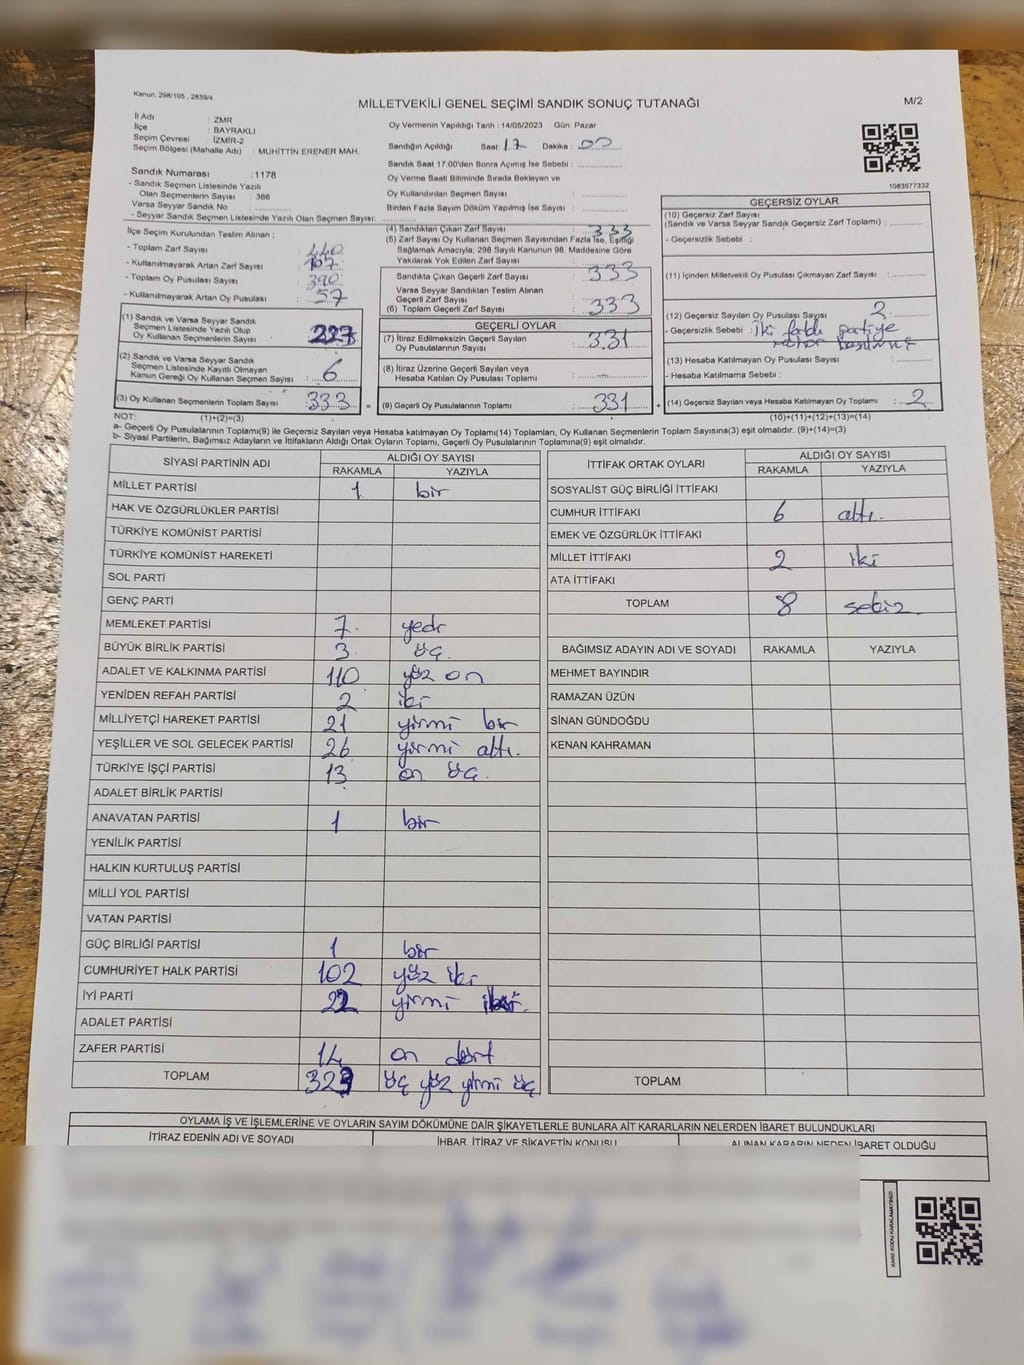 Kanun: 298/105 , 2839/4
MİLLETVEKİLİ GENEL SEÇİMİ SANDIK SONUÇ TUTANAĞI
M/2
İl Adı : ZMR
İlçe : BAYRAKLI
Seçim Çevresi : İZMİR-2
Seçim Bölgesi (Mahalle Adı) : MUHİTTİN ERENER MAH.
Oy Vermenin Yapıldığı Tarih : 14/05/2023 Gün: Pazar
Sandığın Açıldığı Saat: 17 Dakika : 00
Sandık Saat 17:00'den Sonra Açılmış İse Sebebi :
Oy Verme Saati Bitiminde Sırada Bekleyen ve
Oy Kullandırılan Seçmen Sayısı :
Birden Fazla Sayım Döküm Yapılmış İse Sayısı :
1083577332
Sandık Numarası :1178
- Sandık Seçmen Listesinde Yazılı
Olan Seçmenlerin Sayısı : 386
Varsa Seyyar Sandık No :
- Seyyar Sandık Seçmen Listesinde Yazılı Olan Seçmen Sayısı:
İlçe Seçim Kurulundan Teslim Alınan ;
- Toplam Zarf Sayısı : 440
- Kullanılmayarak Artan Zarf Sayısı : 107
- Toplam Oy Pusulası Sayısı : 390
- Kullanılmayarak Artan Oy Pusulası : 57
(1) Sandık ve Varsa Seyyar Sandık
Seçmen Listesinde Yazılı Olup
Oy Kullanan Seçmenlerin Sayısı
(2) Sandık ve Varsa Seyyar Sandık
Seçmen Listesinde Kayıtlı Olmayan
Kanun Gereği Oy Kullanan Seçmen Sayısı : 6
(3) Oy Kullanan Seçmenlerin Toplam Sayısı : 333
(4) Sandıktan Çıkan Zarf Sayısı : 333
(5) Zarf Sayısı Oy Kullanan Seçmen Sayısından Fazla İse, Eşitliği
Sağlamak Amacıyla; 298 Sayılı Kanunun 98. Maddesine Göre
Yakılarak Yok Edilen Zarf Sayısı :
Sandıkta Çıkan Geçerli Zarf Sayısı : 333
Varsa Seyyar Sandıktan Teslim Alınan
Geçerli Zarf Sayısı :
(6) Toplam Geçerli Zarf Sayısı : 333
GEÇERLİ OYLAR
(7) İtiraz Edilmeksizin Geçerli Sayılan
Oy Pusulalarının Sayısı : 331
(8) İtiraz Üzerine Geçerli Sayılan veya
Hesaba Katılan Oy Pusulası Toplamı :
= (9) Geçerli Oy Pusulalarının Toplamı : 331
GEÇERSİZ OYLAR
(10) Geçersiz Zarf Sayısı
(Sandık ve Varsa Seyyar Sandık Geçersiz Zarf Toplamı) :
- Geçersizlik Sebebi :
(11) İçinden Milletvekili Oy Pusulası Çıkmayan Zarf Sayısı :
(12) Geçersiz Sayılan Oy Pusulası Sayısı : 2
- Geçersizlik Sebebi : iki farklı partiye
(13) Hesaba Katılmayan Oy Pusulası Sayısı :
- Hesaba Katılmama Sebebi :
+ (14) Geçersiz Sayılan veya Hesaba Katılmayan Oy Toplamı : 2
NOT: (1)+(2)=(3)
(10)+(11)+(12)+(13)=(14)
a- Geçerli Oy Pusulalarının Toplamı(9) ile Geçersiz Sayılan veya Hesaba katılmayan Oy Toplamı(14) Toplamları, Oy Kullanan Seçmenlerin Toplam Sayısına(3) eşit olmalıdır. (9)+(14)=(3)
b- Siyasi Partilerin, Bağımsız Adayların ve İttifakların Aldığı Ortak Oyların Toplamı, Geçerli Oy Pusulalarının Toplamına(9) eşit olmalıdır.
SİYASİ PARTİNİN ADI
ALDIĞI OY SAYISI
RAKAMLA YAZIYLA
MİLLET PARTİSİ 1 bir
HAK VE ÖZGÜRLÜKLER PARTİSİ
TÜRKİYE KOMÜNİST PARTİSİ
TÜRKİYE KOMÜNİST HAREKETİ
SOL PARTİ
GENÇ PARTİ
MEMLEKET PARTİSİ 7 yedi
BÜYÜK BİRLİK PARTİSİ 3 üç.
ADALET VE KALKINMA PARTİSİ 110 yüz on
YENİDEN REFAH PARTİSİ 2 iki
MİLLİYETÇİ HAREKET PARTİSİ 21 yirmi bir
YEŞİLLER VE SOL GELECEK PARTİSİ 26 yirmi altı.
TÜRKİYE İŞÇİ PARTİSİ 13 on üç.
ADALET BİRLİK PARTİSİ
ANAVATAN PARTİSİ 1 bir
YENİLİK PARTİSİ
HALKIN KURTULUŞ PARTİSİ
MİLLİ YOL PARTİSİ
VATAN PARTİSİ
GÜÇ BİRLİĞİ PARTİSİ 1 bir
CUMHURİYET HALK PARTİSİ 102 yüz iki
İYİ PARTİ 22 yirmi
ADALET PARTİSİ
ZAFER PARTİSİ 14 on dört
TOPLAM 323 üç yüz yirmi üç
İTTİFAK ORTAK OYLARI
ALDIĞI OY SAYISI
RAKAMLA YAZIYLA
SOSYALİST GÜÇ BİRLİĞİ İTTİFAKI
CUMHUR İTTİFAKI 6 altı.
EMEK VE ÖZGÜRLÜK İTTİFAKI
MİLLET İTTİFAKI 2 iki
ATA İTTİFAKI
TOPLAM 8 sekiz.
BAĞIMSIZ ADAYIN ADI VE SOYADI RAKAMLA YAZIYLA
MEHMET BAYINDIR
RAMAZAN ÜZÜN
SİNAN GÜNDOĞDU
KENAN KAHRAMAN
TOPLAM
OYLAMA İŞ VE İŞLEMLERİNE VE OYLARIN SAYIM DÖKÜMÜNE DAİR ŞİKAYETLERLE BUNLARA AİT KARARLARIN NELERDEN İBARET BULUNDUKLARI
İTİRAZ EDENİN ADI VE SOYADI İHBAR, İTİRAZ VE ŞİKAYETİN KONUSU ALINAN KARARIN NEDEN İBARET OLDUĞU
KARE KODU KARALAMAYINIZ!